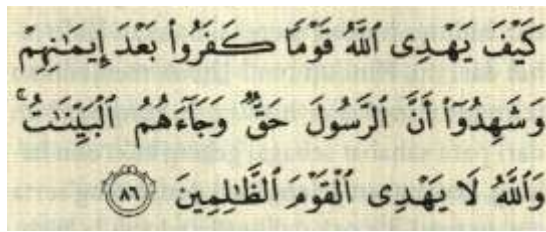 كَيْفَ يَهْدِى ٱللَّهُ قَوْمًا كَفَرُوا۟ بَعْدَ إِيمَٰنِهِمْ
وَشَهِدُوٓا۟ أَنَّ ٱلرَّسُولَ حَقٌّ وَجَآءَهُمُ ٱلْبَيِّنَٰتُ ۚ
وَٱللَّهُ لَا يَهْدِى ٱلْقَوْمَ ٱلظَّٰلِمِينَ ﴿٨٦﴾